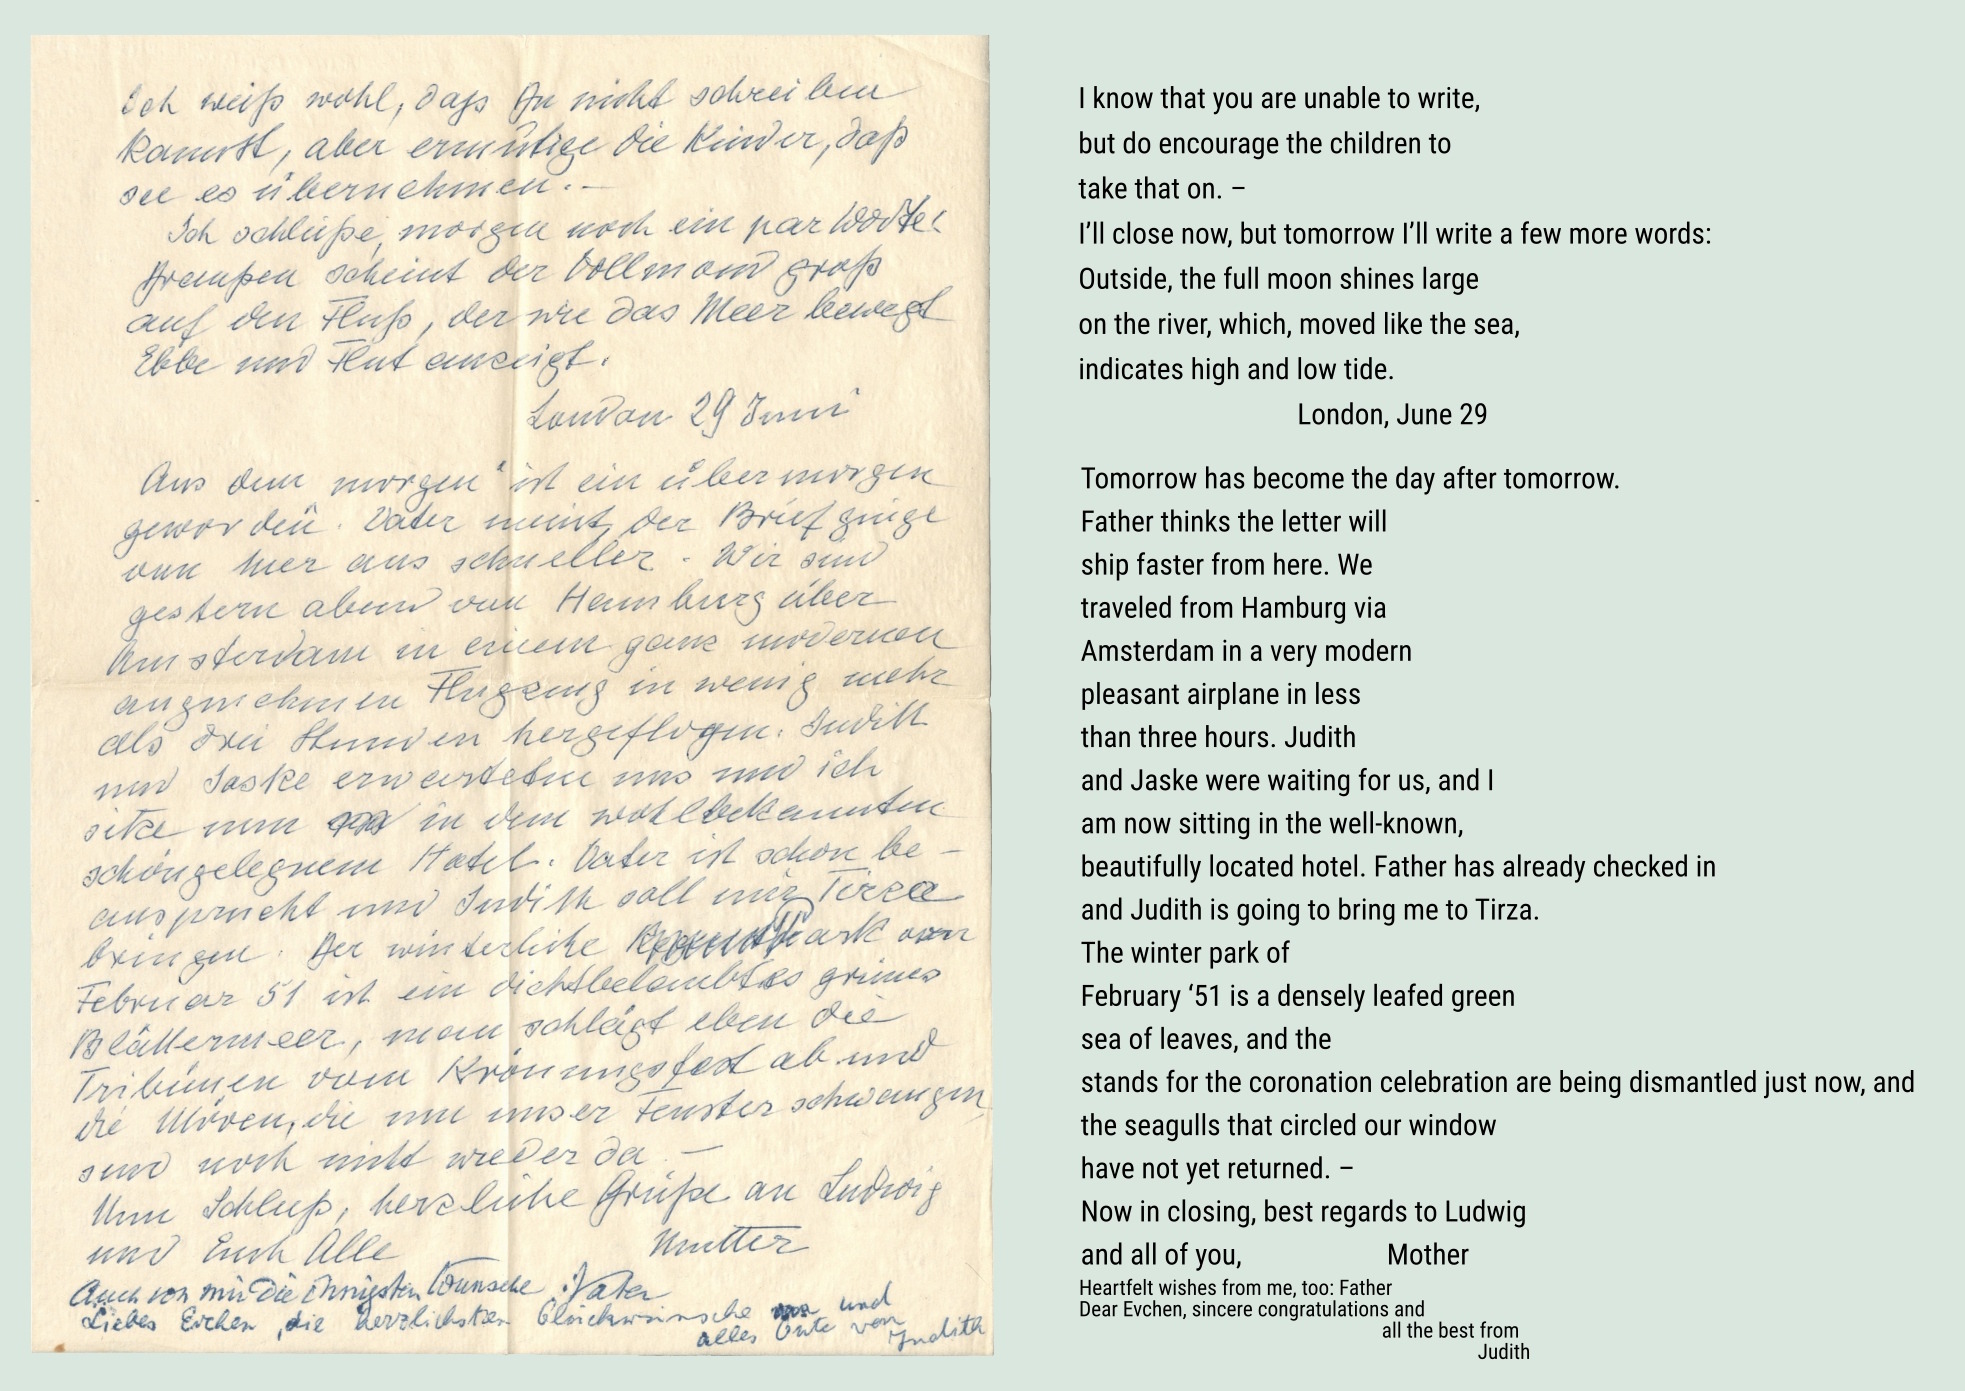 Ich weiß wohl, daß Du nicht schreiben
kannst, aber ermutige die Kinder, daß
sie es übernehmen. –
Ich schließe, morgen noch ein par Worte!
Draußen scheint der Vollmond groß
auf den Fluß, der wie das Meer bewegt
Ebbe und Flut anzeigt.
London 29 Juni
Aus dem "morgen" ist ein übermorgen
geworden. Vater meint, der Brief ginge
von hier aus schneller. Wir sind
gestern abend von Hamburg über
Amsterdam in einem ganz modernen
angenehmen Flugzeug in wenig mehr
als drei Stunden hergeflogen. Judith
und Jaske erwarteten uns und ich
sitze nun in dem wohlbekannten
schöngelegnem Hotel. Vater ist schon be-
ansprucht und Judith soll mir Tirza
bringen. Der winterliche Park von
Februar 51 ist ein dichtbelaubtes grünes
Blättermeer, man schlägt eben die
Tribünen vom Krönungsfest ab und
die Möven, die um unser Fenster schwangen,
sind noch nicht wieder da. –
Nun Schluß, herzliche Grüße an Ludwig
und Euch Alle Mutter
Auch von mir die innigsten Wünsche: Vater
Liebes Evchen, die herzlichsten Glückwünsche und
alles Gute von
Judith
I know that you are unable to write,
but do encourage the children to
take that on. –
I’ll close now, but tomorrow I’ll write a few more words:
Outside, the full moon shines large
on the river, which, moved like the sea,
indicates high and low tide.
London, June 29
Tomorrow has become the day after tomorrow.
Father thinks the letter will
ship faster from here. We
traveled from Hamburg via
Amsterdam in a very modern
pleasant airplane in less
than three hours. Judith
and Jaske were waiting for us, and I
am now sitting in the well-known,
beautifully located hotel. Father has already checked in
and Judith is going to bring me to Tirza.
The winter park of
February ‘51 is a densely leafed green
sea of leaves, and the
stands for the coronation celebration are being dismantled just now, and
the seagulls that circled our window
have not yet returned. –
Now in closing, best regards to Ludwig
and all of you, Mother
Heartfelt wishes from me, too: Father
Dear Evchen, sincere congratulations and
all the best from
Judith